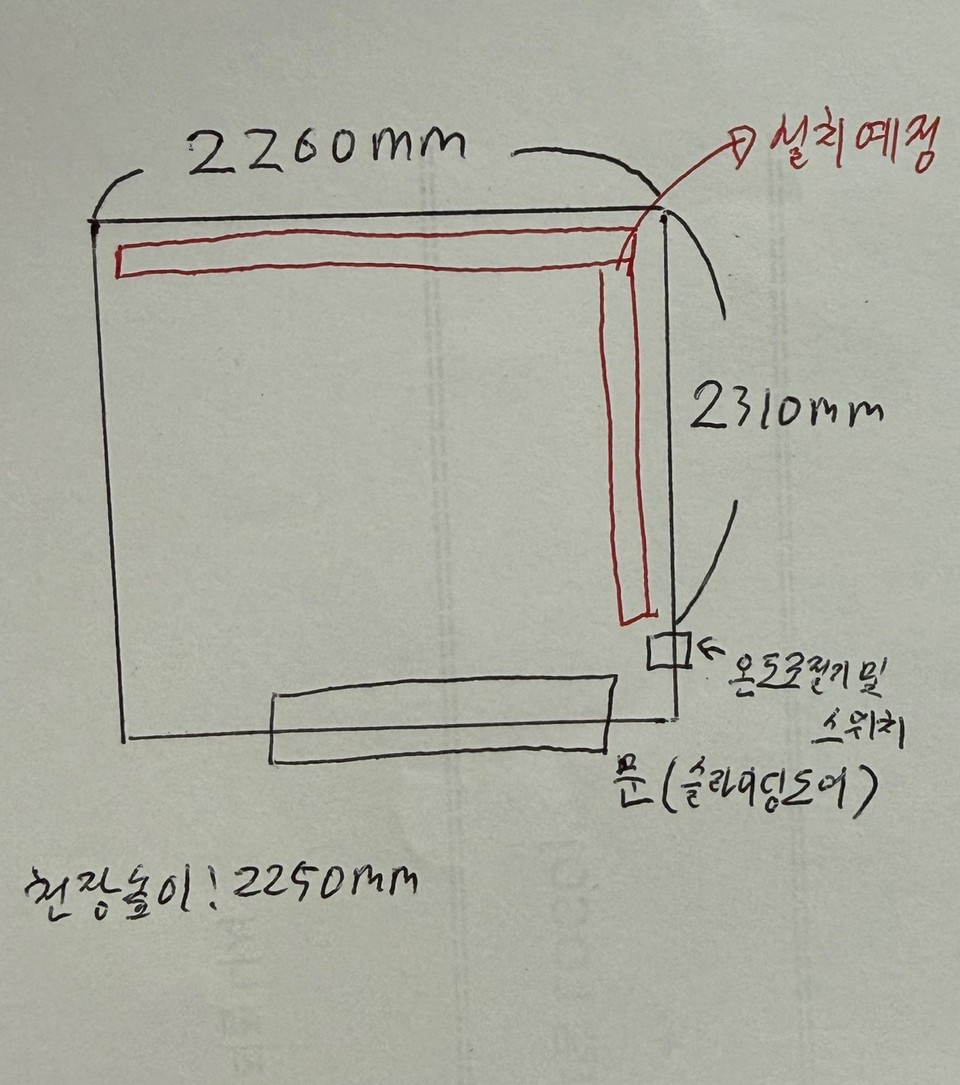 2260mm
설치예정
2310mm
온도조절기 및
스위치
문(슬라이딩도어)
천장높이: 2250mm